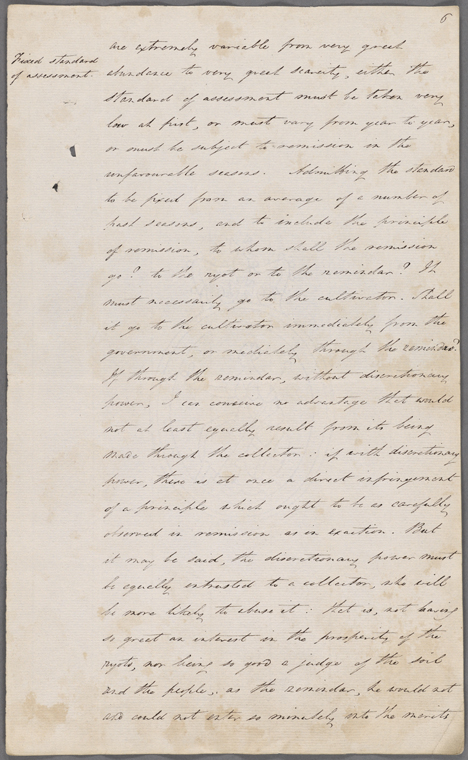 6
Fixed standard
of assessment
are extremely variable from very great
abundance to very great scarcity, either the
standard of assessment must be taken very
low at first, or must vary from year to year,
or must be subject to remission in the
unfavourable seasons. Admitting the standard
to be fixed from an average of a number of
past seasons, and to include the principle
of remission, to whom shall the remission
go? to the ryot or to the zemindar? It
must necessarily go to the cultivator. Shall
it go to the cultivator immediately from the
government, or mediately through the zemindar?
If through the zemindar, without discretionary
power, I can conceive no advantage that would
not at least equally result from its being
made through the collector: if with discretionary
power, there is at once a direct infringement
of a principle which ought to be as carefully
observed in remission as in exaction. But
it may be said, the discretionary power must
be equally entrusted to a collector, who will
be more likely to abuse it: that is, not having
so great an interest in the prosperity of the
ryots, nor being so good a judge of the soil
and the people, as the zemindar, he would not
and could not enter so minutely into the merits